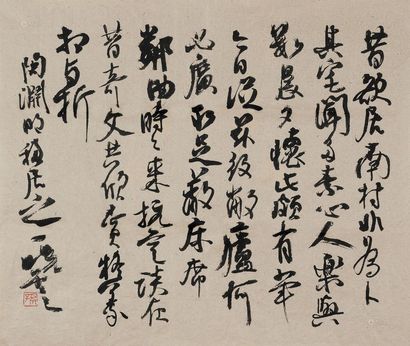 昔欲居南村非為卜
其宅聞多素心人樂與
數晨夕懷此頗有年
今日從茲役敝廬何
必廣取足蔽床席
鄰曲時々來抗言談在
昔奇文共欣賞疑義
相與析
陶淵明移居之一